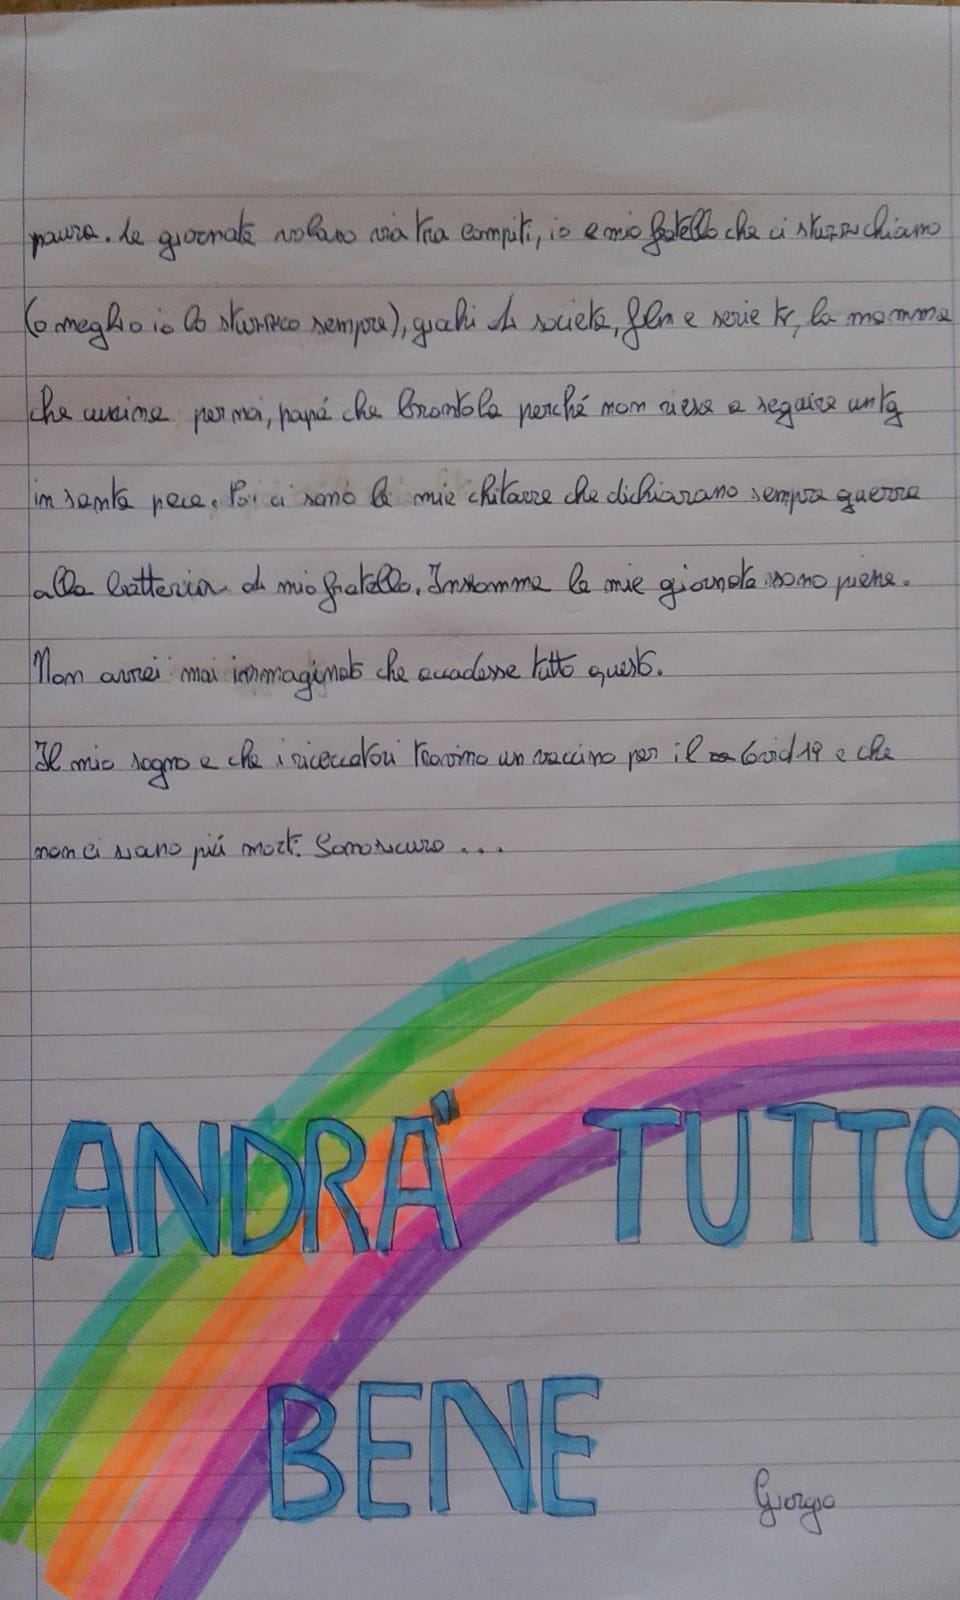 paura. Le giornate volano via tra compiti, io e mio fratello che ci stuzzichiamo
(o meglio io lo stuzzico sempre), giochi di società, film e serie tv, la mamma
che cucina per noi, papá che brontola perché non riesce a seguire un tg
in santa pace. Poi ci sono le mie chitarre che dichiarano sempre guerra
alla batteria di mio fratello. Insomma le mie giornate sono piene.
Non avrei mai immaginato che accadesse tutto questo.
Il mio sogno e che i ricercatori trovino un vaccino per il Covid 19 e che
non ci siano piú morti. Sono sicuro ...
ANDRA' TUTTO
BENE
Giorgio